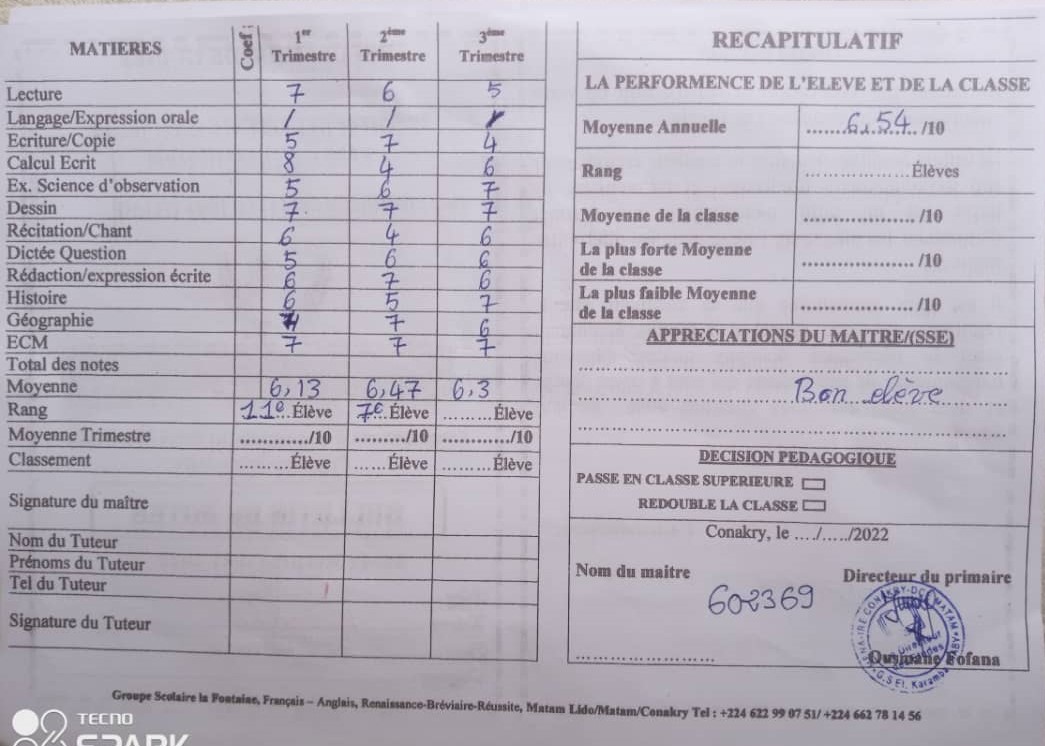 MATIERES Coef : 1er Trimestre 2ème Trimestre 3ème Trimestre
Lecture 7 6 5
Langage/Expression orale / / /
Ecriture/Copie 5 7 4
Calcul Ecrit 8 4 6
Ex. Science d'observation 5 6 7
Dessin 7 7 7
Récitation/Chant 6 4 6
Dictée Question 5 6 6
Rédaction/expression écrite 6 7 6
Histoire 6 5 7
Géographie 7 6
ECM 7 7 7
Total des notes
Moyenne 6,13 6,47 6,3
Rang 11e Élève 7e Élève ..........Élève
Moyenne Trimestre ............/10 ........./10 ............/10
Classement .........Élève ......Élève .........Élève
Signature du maître
Nom du Tuteur
Prénoms du Tuteur
Tel du Tuteur
Signature du Tuteur
RECAPITULATIF
LA PERFORMENCE DE L'ELEVE ET DE LA CLASSE
Moyenne Annuelle .......6.54../10
Rang ..................Élèves
Moyenne de la classe ..................../10
La plus forte Moyenne
de la classe ..................../10
La plus faible Moyenne
de la classe ..................../10
APPRECIATIONS DU MAITRE/(SSE)
Bon élève
DECISION PEDAGOGIQUE
PASSE EN CLASSE SUPERIEURE
REDOUBLE LA CLASSE
Conakry, le ..../...../2022
Nom du maitre Directeur du primaire
602369
Ousmane Fofana
Groupe Scolaire la Fontaine, Français – Anglais, Renaissance-Bréviaire-Réussite, Matam Lido/Matam/Conakry Tel : +224 622 99 07 51/ +224 662 78 14 56
TECNO
SPARK